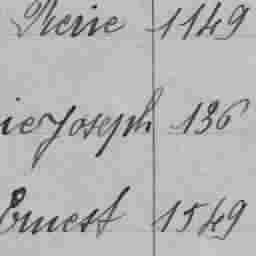 Rerie 1149
ie Joseph 136
Ernest 1549